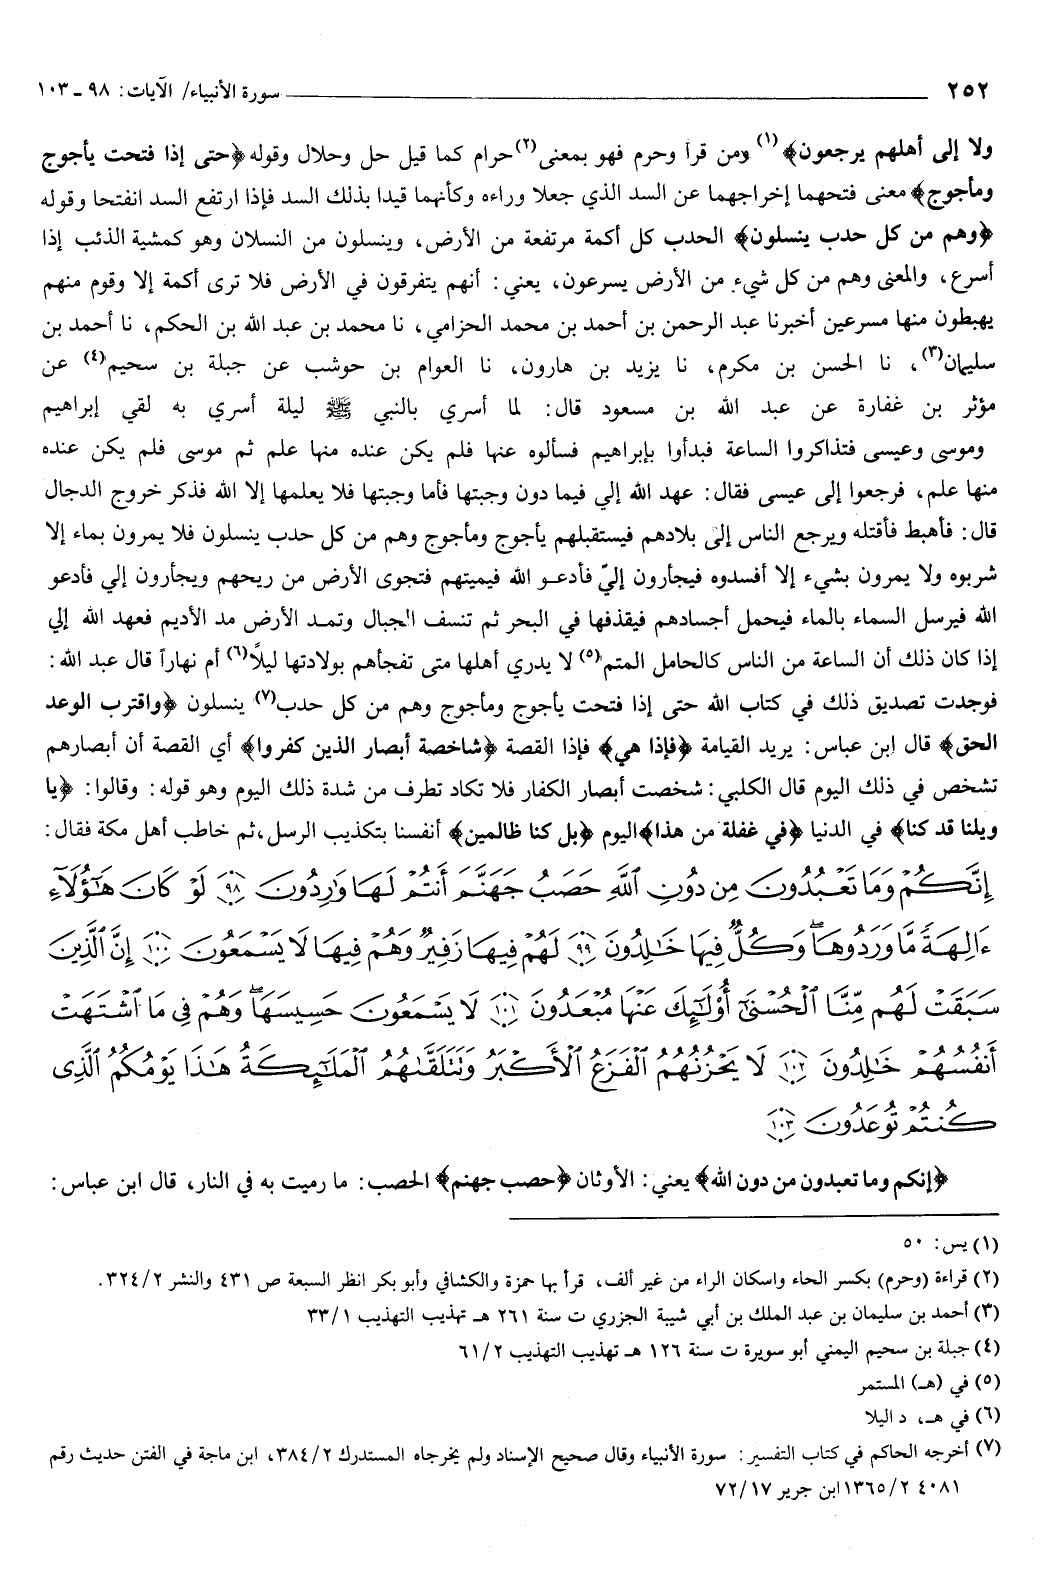 ٢٥٢ سورة الأنبياء/ الآيات: ٩٨ ـ ١٠٣
ولا إلى أهلهم يرجعون﴾(١) ومن قرأ وحرم فهو بمعنى(٢) حرام كما قيل حل وحلال وقوله ﴿حتى إذا فتحت يأجوج
ومأجوج﴾ معنى فتحهما إخراجهما عن السد الذي جعلا وراءه وكأنهما قيدا بذلك السد فإذا ارتفع السد انفتحا وقوله
﴿وهم من كل حدب ينسلون﴾ الحدب كل أكمة مرتفعة من الأرض، وينسلون من النسلان وهو كمشية الذئب إذا
أسرع، والمعنى وهم من كل شيء من الأرض يسرعون، يعني: أنهم يتفرقون في الأرض فلا ترى أكمة إلا وقوم منهم
يهبطون منها مسرعين أخبرنا عبد الرحمن بن أحمد بن محمد الحزامي، نا محمد بن عبد الله بن الحكم، نا أحمد بن
سليمان(٣)، نا الحسن بن مكرم، نا يزيد بن هارون، نا العوام بن حوشب عن جبلة بن سحيم(٤) عن
مؤثر بن غفارة عن عبد الله بن مسعود قال: لما أسري بالنبي ﷺ ليلة أسري به لقي إبراهيم
وموسى وعيسى فتذاكروا الساعة فبدأوا بإبراهيم فسألوه عنها فلم يكن عنده منها علم ثم موسى فلم يكن عنده
منها علم، فرجعوا إلى عيسى فقال: عهد الله إلي فيما دون وجبتها فأما وجبتها فلا يعلمها إلا الله فذكر خروج الدجال
قال: فأهبط فأقتله ويرجع الناس إلى بلادهم فيستقبلهم يأجوج ومأجوج وهم من كل حدب ينسلون فلا يمرون بماء إلا
شربوه ولا يمرون بشيء إلا أفسدوه فيجأرون إليّ فأدعو الله فيميتهم فتجوى الأرض من ريحهم ويجأرون إلي فأدعو
الله فيرسل السماء بالماء فيحمل أجسادهم فيقذفها في البحر ثم تنسف الجبال وتمد الأرض مد الأديم فعهد الله إلي
إذا كان ذلك أن الساعة من الناس كالحامل المتم(٥) لا يدري أهلها متى تفجأهم بولادتها ليلاً(٦) أم نهاراً قال عبد الله:
فوجدت تصديق ذلك في كتاب الله حتى إذا فتحت يأجوج ومأجوج وهم من كل حدب(٧) ينسلون ﴿واقترب الوعد
الحق﴾ قال ابن عباس: يريد القيامة ﴿فإذا هي﴾ فإذا القصة ﴿شاخصة أبصار الذين كفروا﴾ أي القصة أن أبصارهم
تشخص في ذلك اليوم قال الكلبي: شخصت أبصار الكفار فلا تكاد تطرف من شدة ذلك اليوم وهو قوله: وقالوا: ﴿يا
ويلنا قد كنا﴾ في الدنيا ﴿في غفلة من هذا﴾ اليوم ﴿بل كنا ظالمين﴾ أنفسنا بتكذيب الرسل، ثم خاطب أهل مكة فقال:
إِنَّكُمْ وَمَا تَعْبُدُونَ مِن دُونِ اللَّهِ حَصَبُ جَهَنَّمَ أَنتُمْ لَهَا وَارِدُونَ ٩٨ لَوْ كَانَ هَٰؤُلَاءِ
ءَالِهَةً مَّا وَرَدُوهَا ۖ وَكُلٌّ فِيهَا خَالِدُونَ ٩٩ لَهُمْ فِيهَا زَفِيرٌ وَهُمْ فِيهَا لَا يَسْمَعُونَ ١٠٠ إِنَّ الَّذِينَ
سَبَقَتْ لَهُم مِّنَّا الْحُسْنَىٰ أُولَٰئِكَ عَنْهَا مُبْعَدُونَ ١٠١ لَا يَسْمَعُونَ حَسِيسَهَا ۖ وَهُمْ فِي مَا اشْتَهَتْ
أَنفُسُهُمْ خَالِدُونَ ١٠٢ لَا يَحْزُنُهُمُ الْفَزَعُ الْأَكْبَرُ وَتَتَلَقَّاهُمُ الْمَلَائِكَةُ هَٰذَا يَوْمُكُمُ الَّذِي
كُنتُمْ تُوعَدُونَ ١٠٣
﴿إنكم وما تعبدون من دون الله﴾ يعني: الأوثان ﴿حصب جهنم﴾ الحصب: ما رميت به في النار، قال ابن عباس:
(١) يس: ٥٠
(٢) قراءة (وحرم) بكسر الحاء واسكان الراء من غير ألف، قرأ بها حمزة والكشافي وأبو بكر انظر السبعة ص ٤٣١ والنشر ٣٢٤/٢.
(٣) أحمد بن سليمان بن عبد الملك بن أبي شيبة الجزري ت سنة ٢٦١ هـ تهذيب التهذيب ٣٣/١
(٤) جبلة بن سحيم اليمني أبو سويرة ت سنة ١٢٦ هـ تهذيب التهذيب ٦١/٢
(٥) في (هـ) المستمر
(٦) في هـ، د اليلا
(٧) أخرجه الحاكم في كتاب التفسير: سورة الأنبياء وقال صحيح الإسناد ولم يخرجاه المستدرك ٣٨٤/٢، ابن ماجة في الفتن حديث رقم
٤٠٨١ ١٣٦٥/٢ ابن جرير ٧٢/١٧